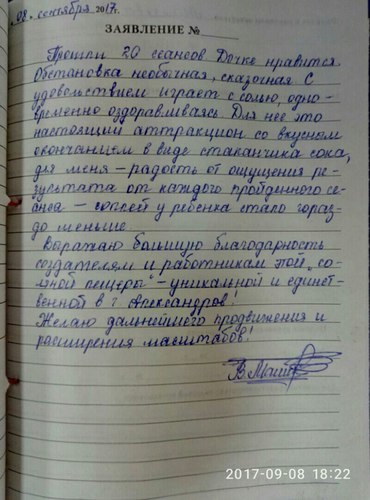 08. сентября 2017г.
ЗАЯВЛЕНИЕ №
Прошли 20 сеансов Дочке нравится
Обстановка необычная, сказочная С
удовольствием играет с солью, одно-
временно оздоравливаясь Для нее это
настоящий аттракцион со вкусным
окончанием в виде стаканчика сока,
для меня – радость от ощущения ре-
зультата от каждого пройденного се-
анса – соплей у ребенка стало гораз-
до меньше.
Выражаю большую благодарность
создателям и работникам этой „со-
ляной пещеры" – уникальной и единст-
венной в г Александров!
Желаю дальнейшего продвижения и
расширения масштабов!
2017-09-08 18:22